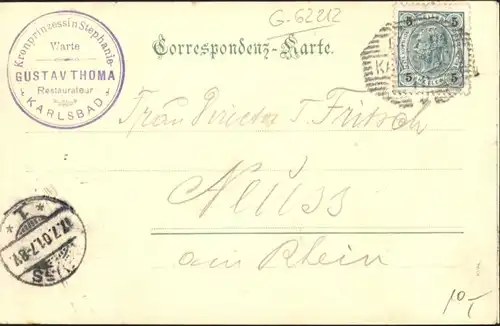 G-62212
Kronprinzessin Stephanie-
Warte
GUSTAV THOMA
Restaurateur
KARLSBAD
Correspondenz-Karte.
5 5
KA
5 5
Frau Director T. Fritsch
Neuss
am Rhein
* 1 *
7.7.01.7-8V.
USS
10,-